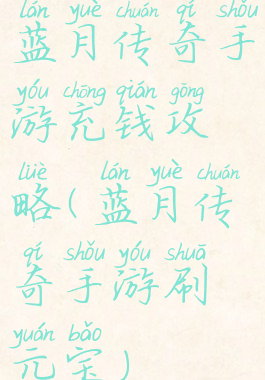 lán yuè chuán qí shǒu
蓝月传奇手
yóu chōng qián gōng
游充钱攻
lüè lán yuè chuán
略(蓝月传
qí shǒu yóu shuā
奇手游刷
yuán bǎo
元宝)